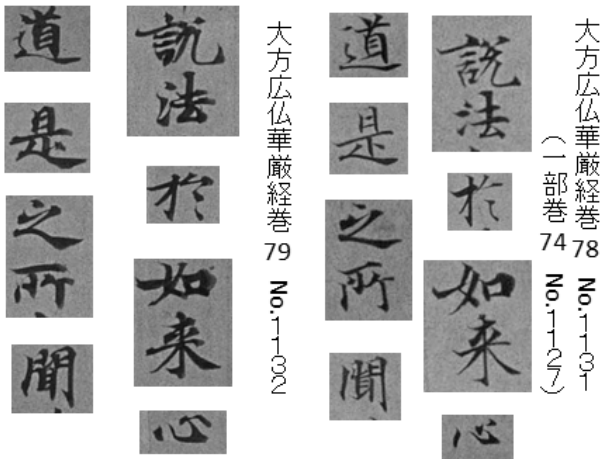 大方広仏華厳経巻78 No.1131
（一部巻74 No.1127）
説法
於
如来
心
道
是
之所
聞
大方広仏華厳経巻79 No.1132
説法
於
如来
心
道
是
之所
聞